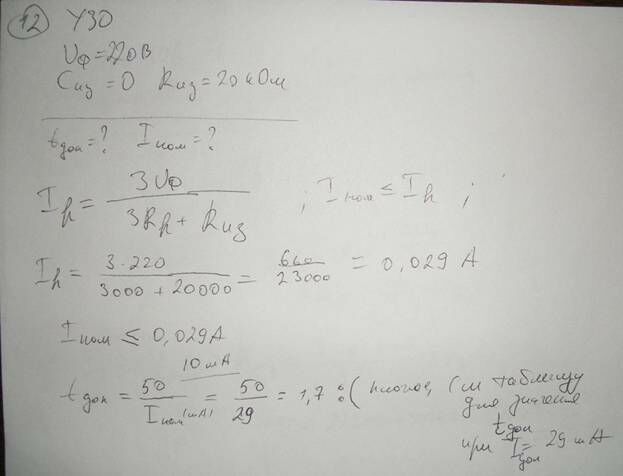 12 УЗО
Uф = 220 В
Cиз = 0 Rиз = 20 кОм
tдоп = ? Iном = ?
Ih = 3Uф / (3Rh + Rиз) ; Iном ≤ Ih ;
Ih = 3·220 / (3000 + 20000) = 660 / 23000 = 0,029 А
Iном ≤ 0,029 А
10 mA
tдоп = 50 / Iном(mA) = 50 / 29 = 1,7 :( плохое, См таблицу
для значения
tдоп
при Iдоп = 29 mA